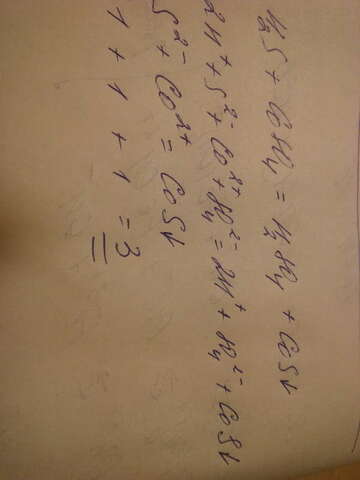 H₂S + CoSO₄ = H₂SO₄ + CoS↓
2H⁺ + S²⁻ + Co²⁺ + SO₄²⁻ = 2H⁺ + SO₄²⁻ + CoS↓
S²⁻ + Co²⁺ = CoS↓
1 + 1 + 1 = 3